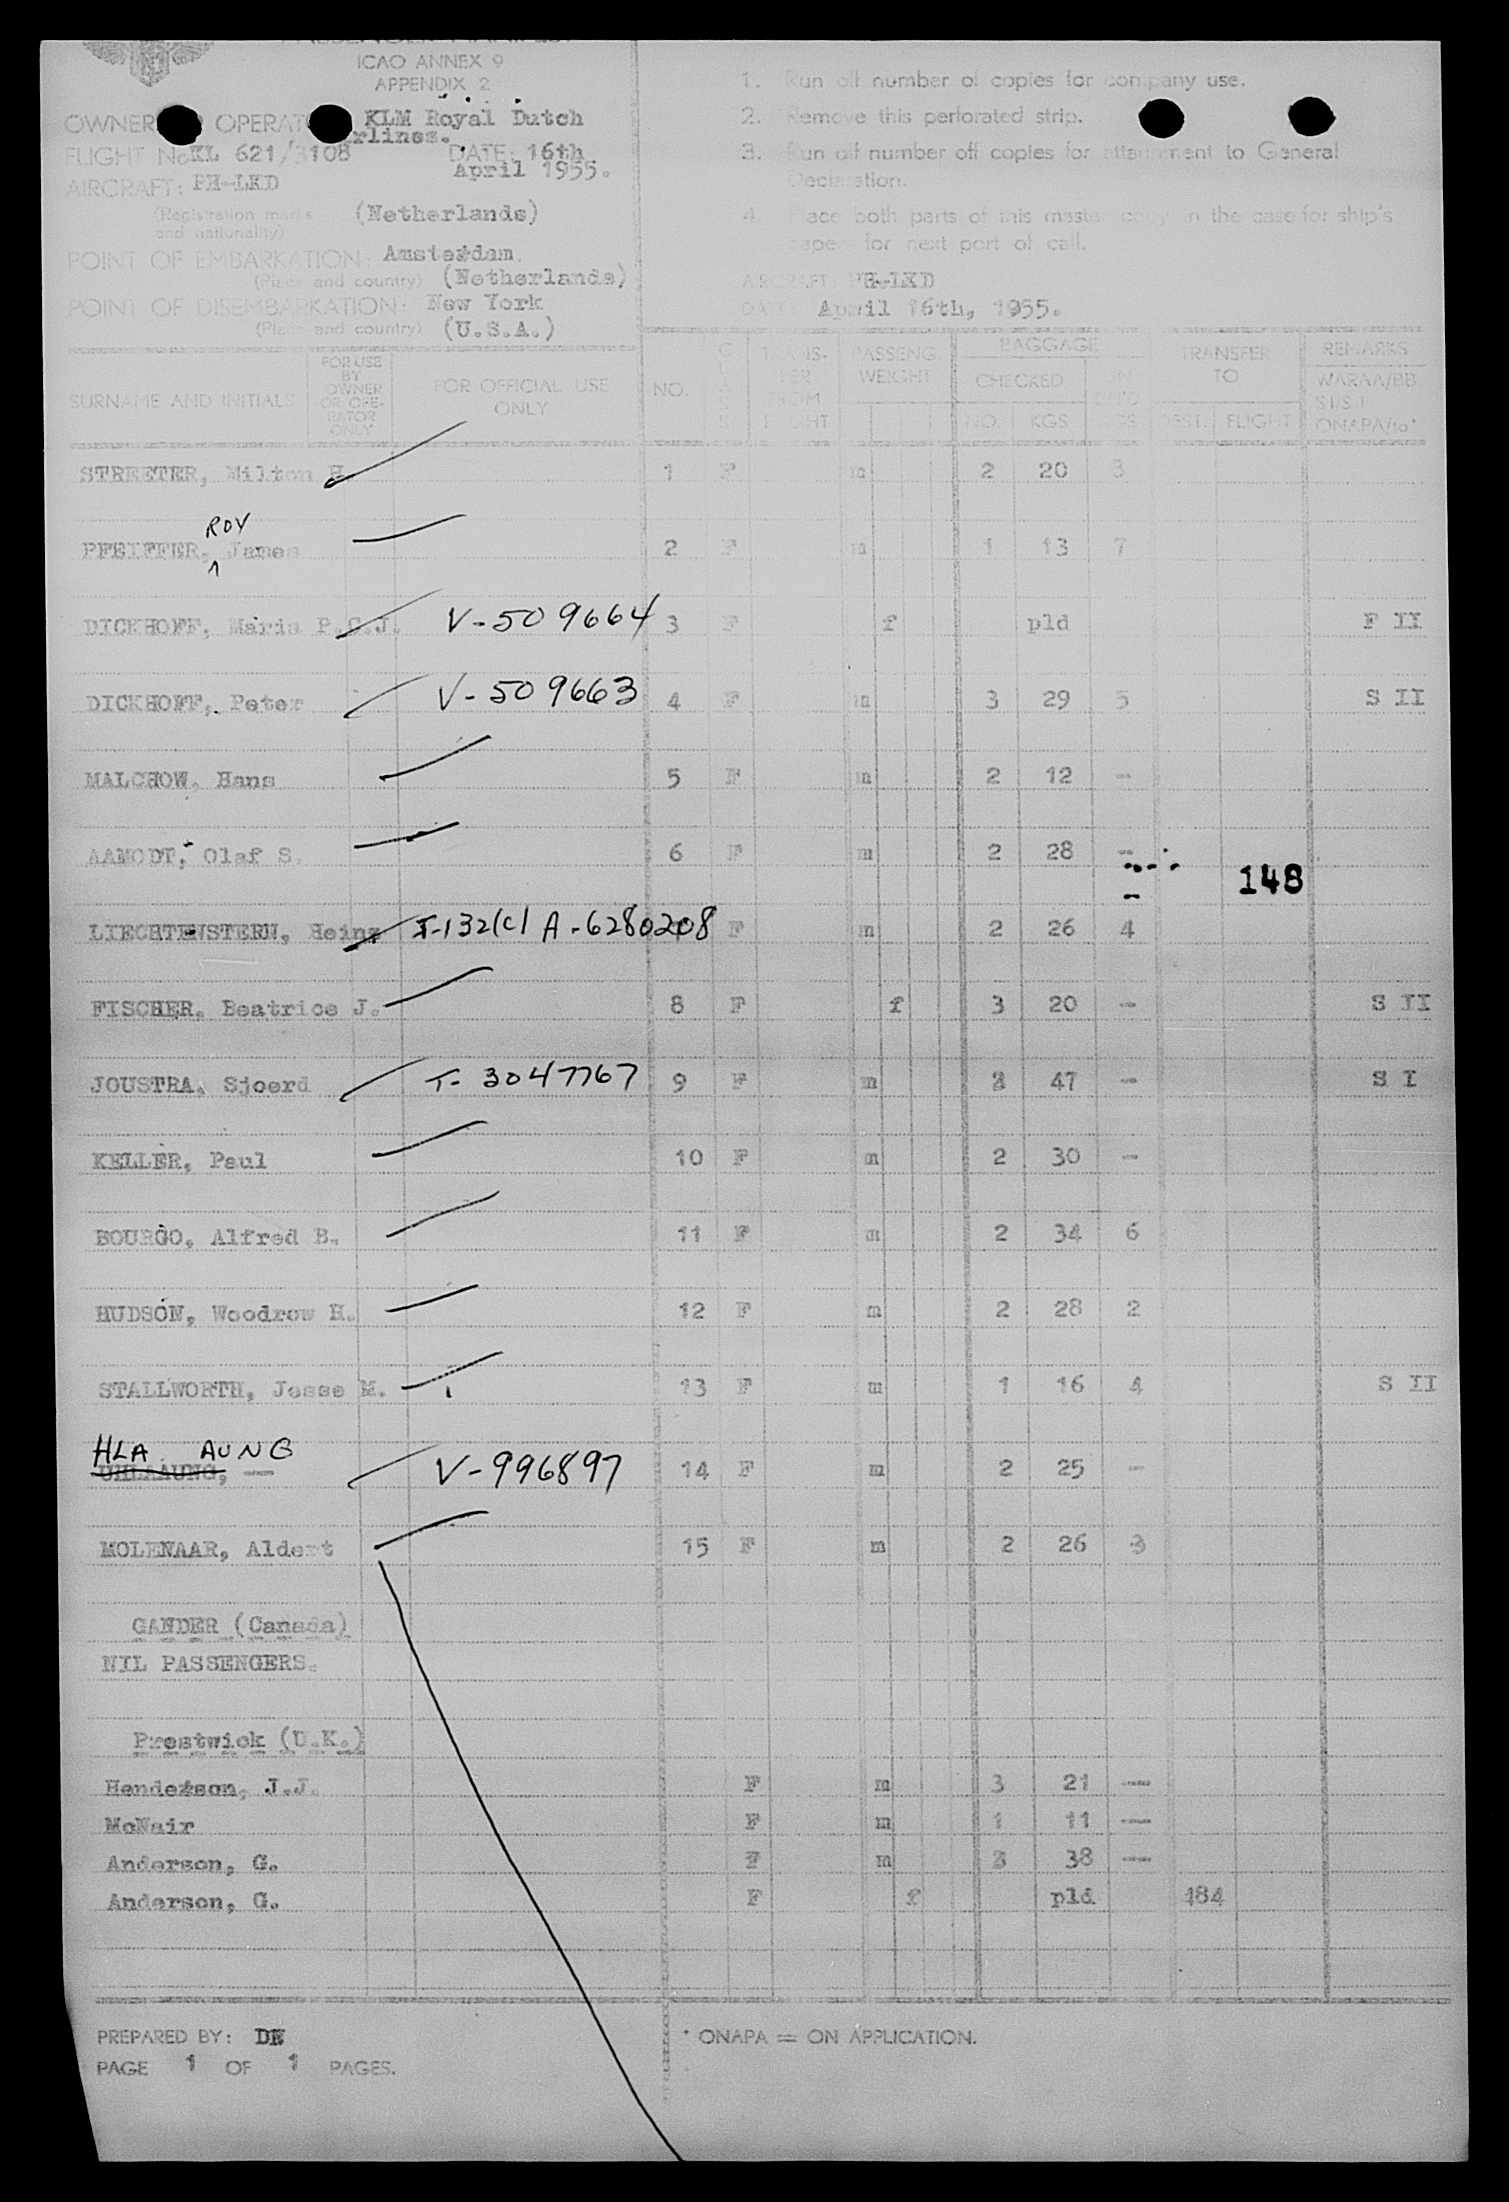 PASSENGER MANIFEST
ICAO ANNEX 9
APPENDIX 2
OWNER OPERAT KLM Royal Dutch
rlines.
FLIGHT No KL 621/3108 DATE: 16th
April 1955.
AIRCRAFT: PH-LKD
(Registration marks (Netherlands)
and nationality)
POINT OF EMBARKATION: Amsterdam.
(Place and country) (Netherlands)
POINT OF DISEMBARKATION: New York
(Place and country) (U.S.A.)
1. Run off number of copies for company use.
2. Remove this perforated strip.
3. Run off number off copies for attachment to General
Declaration.
4. Place both parts of this master copy in the case for ship's
papers for next port of call.
AIRCRAFT: PH-LKD
DATE: April 16th, 1955.
SURNAME AND INITIALS FOR USE BY OWNER OR OPE-RATOR ONLY FOR OFFICIAL USE ONLY NO. CLASS TRANS-FER FROM FLIGHT PASSENG. WEIGHT BAGGAGE CHECKED NO. KGS TRANSFER TO DEST. FLIGHT REMARKS WARAA/BB SI/SII ONAPA/to*
STREETER, Milton H. 1 F m 2 20 3
ROY
PFEIFFER, ^ James 2 F m 1 13 7
DICKHOFF, Maria P.C.J. V-509664 3 F f pld F II
DICKHOFF, Peter V-509663 4 F m 3 29 5 S II
MALCHOW, Hans 5 F m 2 12 -
AAMODT, Olaf S. 6 F m 2 28 -
148
LIECHTENSTERN, Heinz I-132(c) A-6280208 F m 2 26 4
FISCHER, Beatrice J. 8 F f 3 20 - S II
JOUSTRA, Sjoerd T-3047767 9 F m 3 47 - S I
KELLER, Paul 10 F m 2 30 -
BOURGO, Alfred B. 11 F m 2 34 6
HUDSON, Woodrow H. 12 F m 2 28 2
STALLWORTH, Jesse M. 13 F m 1 16 4 S II
HLA AUNG
UHLAAUNG, - V-996897 14 F m 2 25 -
MOLENAAR, Aldert 15 F m 2 26 3
GANDER (Canada)
NIL PASSENGERS.
Prestwick (U.K.)
Henderson, J.J. F m 3 21 -
McNair F m 1 11 -
Anderson, G. F m 3 38 -
Anderson, G. F f pld 184
PREPARED BY: DE
PAGE 1 OF 1 PAGES.
* ONAPA = ON APPLICATION.